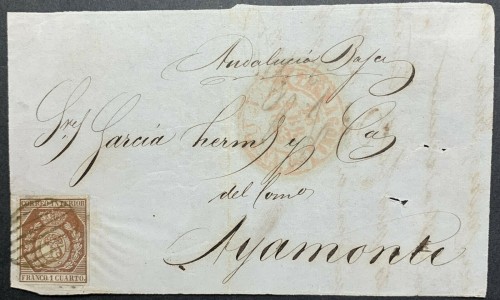 Andalucia Baja
Sres Garcia hermos y Ca
del Como
Ayamonte
CORREO INTERIOR
FRANCO 1 CUARTO